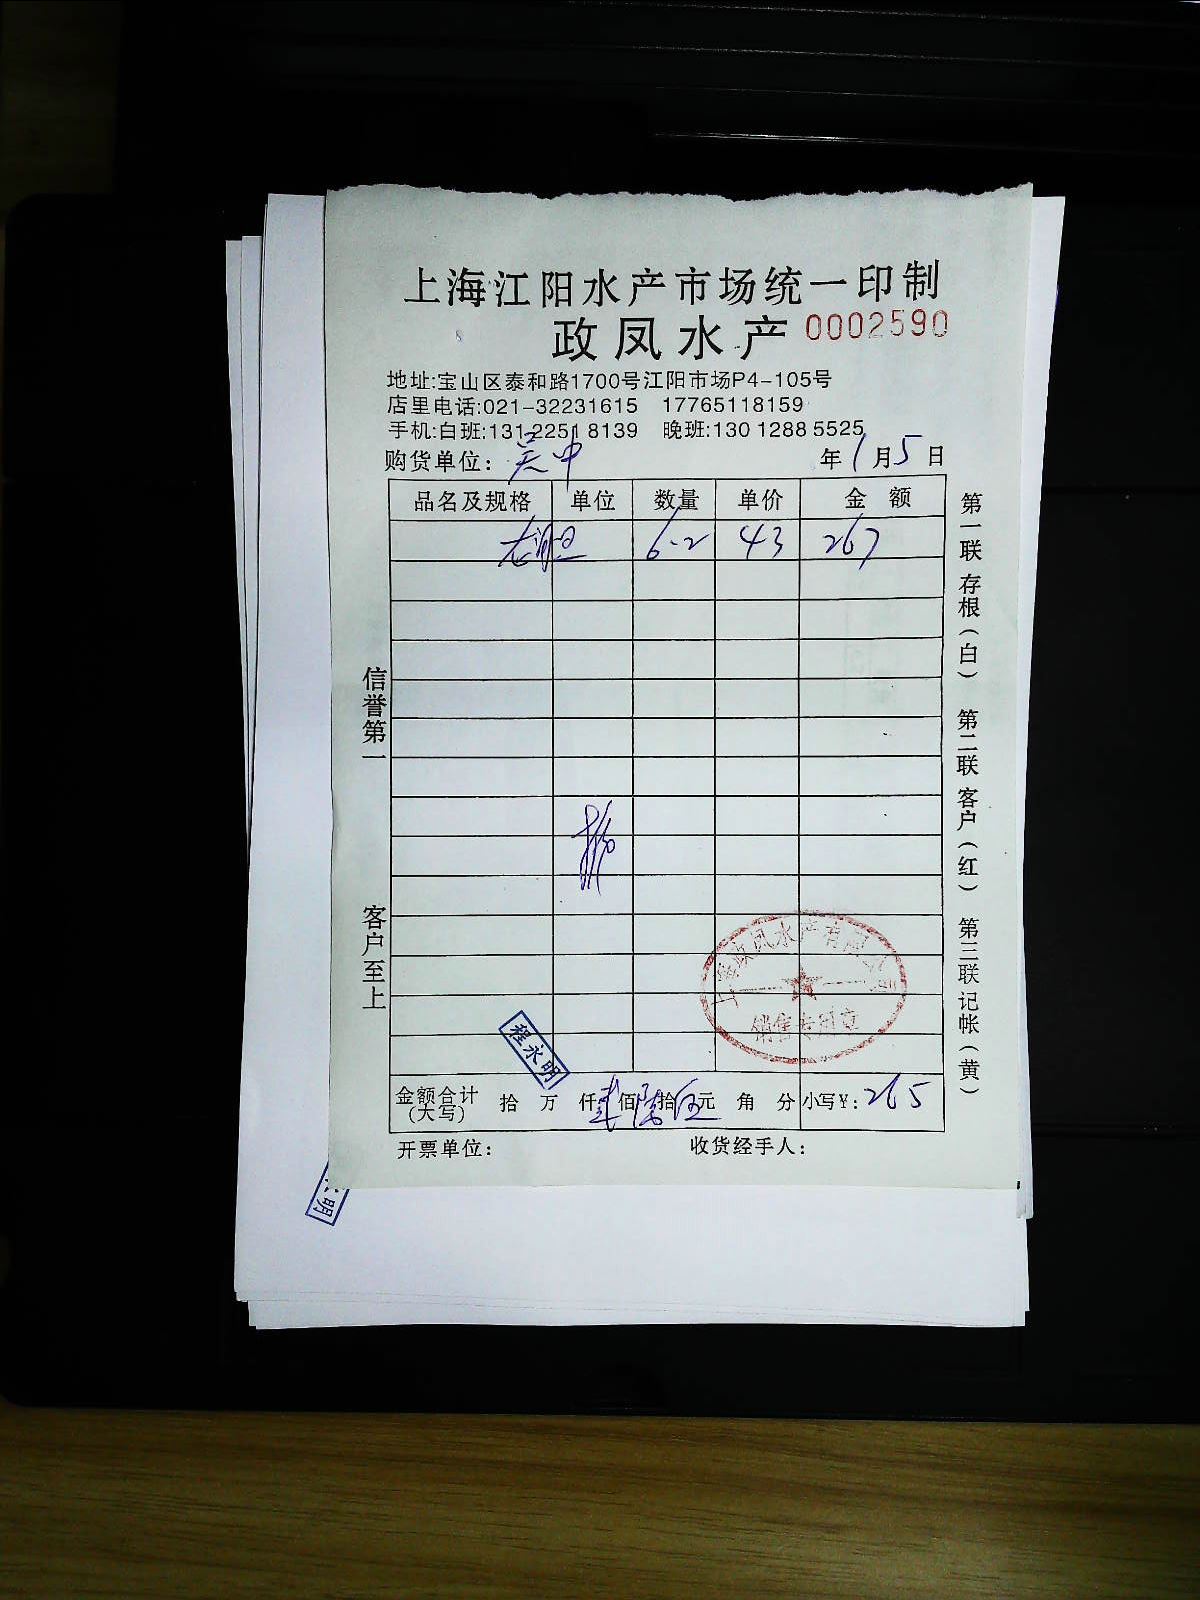 上海江阳水产市场统一印制
政凤水产 0002590
地址:宝山区泰和路1700号江阳市场P4-105号
店里电话:021-32231615 17765118159
手机:白班:131 2251 8139 晚班:130 1288 5525
购货单位: 吴中 年1月5日
品名及规格 单位 数量 单价 金额
6.2 43 267
信誉第一
客户至上
第一联 存根(白) 第二联 客户(红) 第三联 记帐(黄)
上海政凤水产有限公司
销售专用章
程永明
金额合计(大写) 拾 万 仟 贰佰 陆拾 伍元 角 分 小写¥: 265
开票单位: 收货经手人:
明